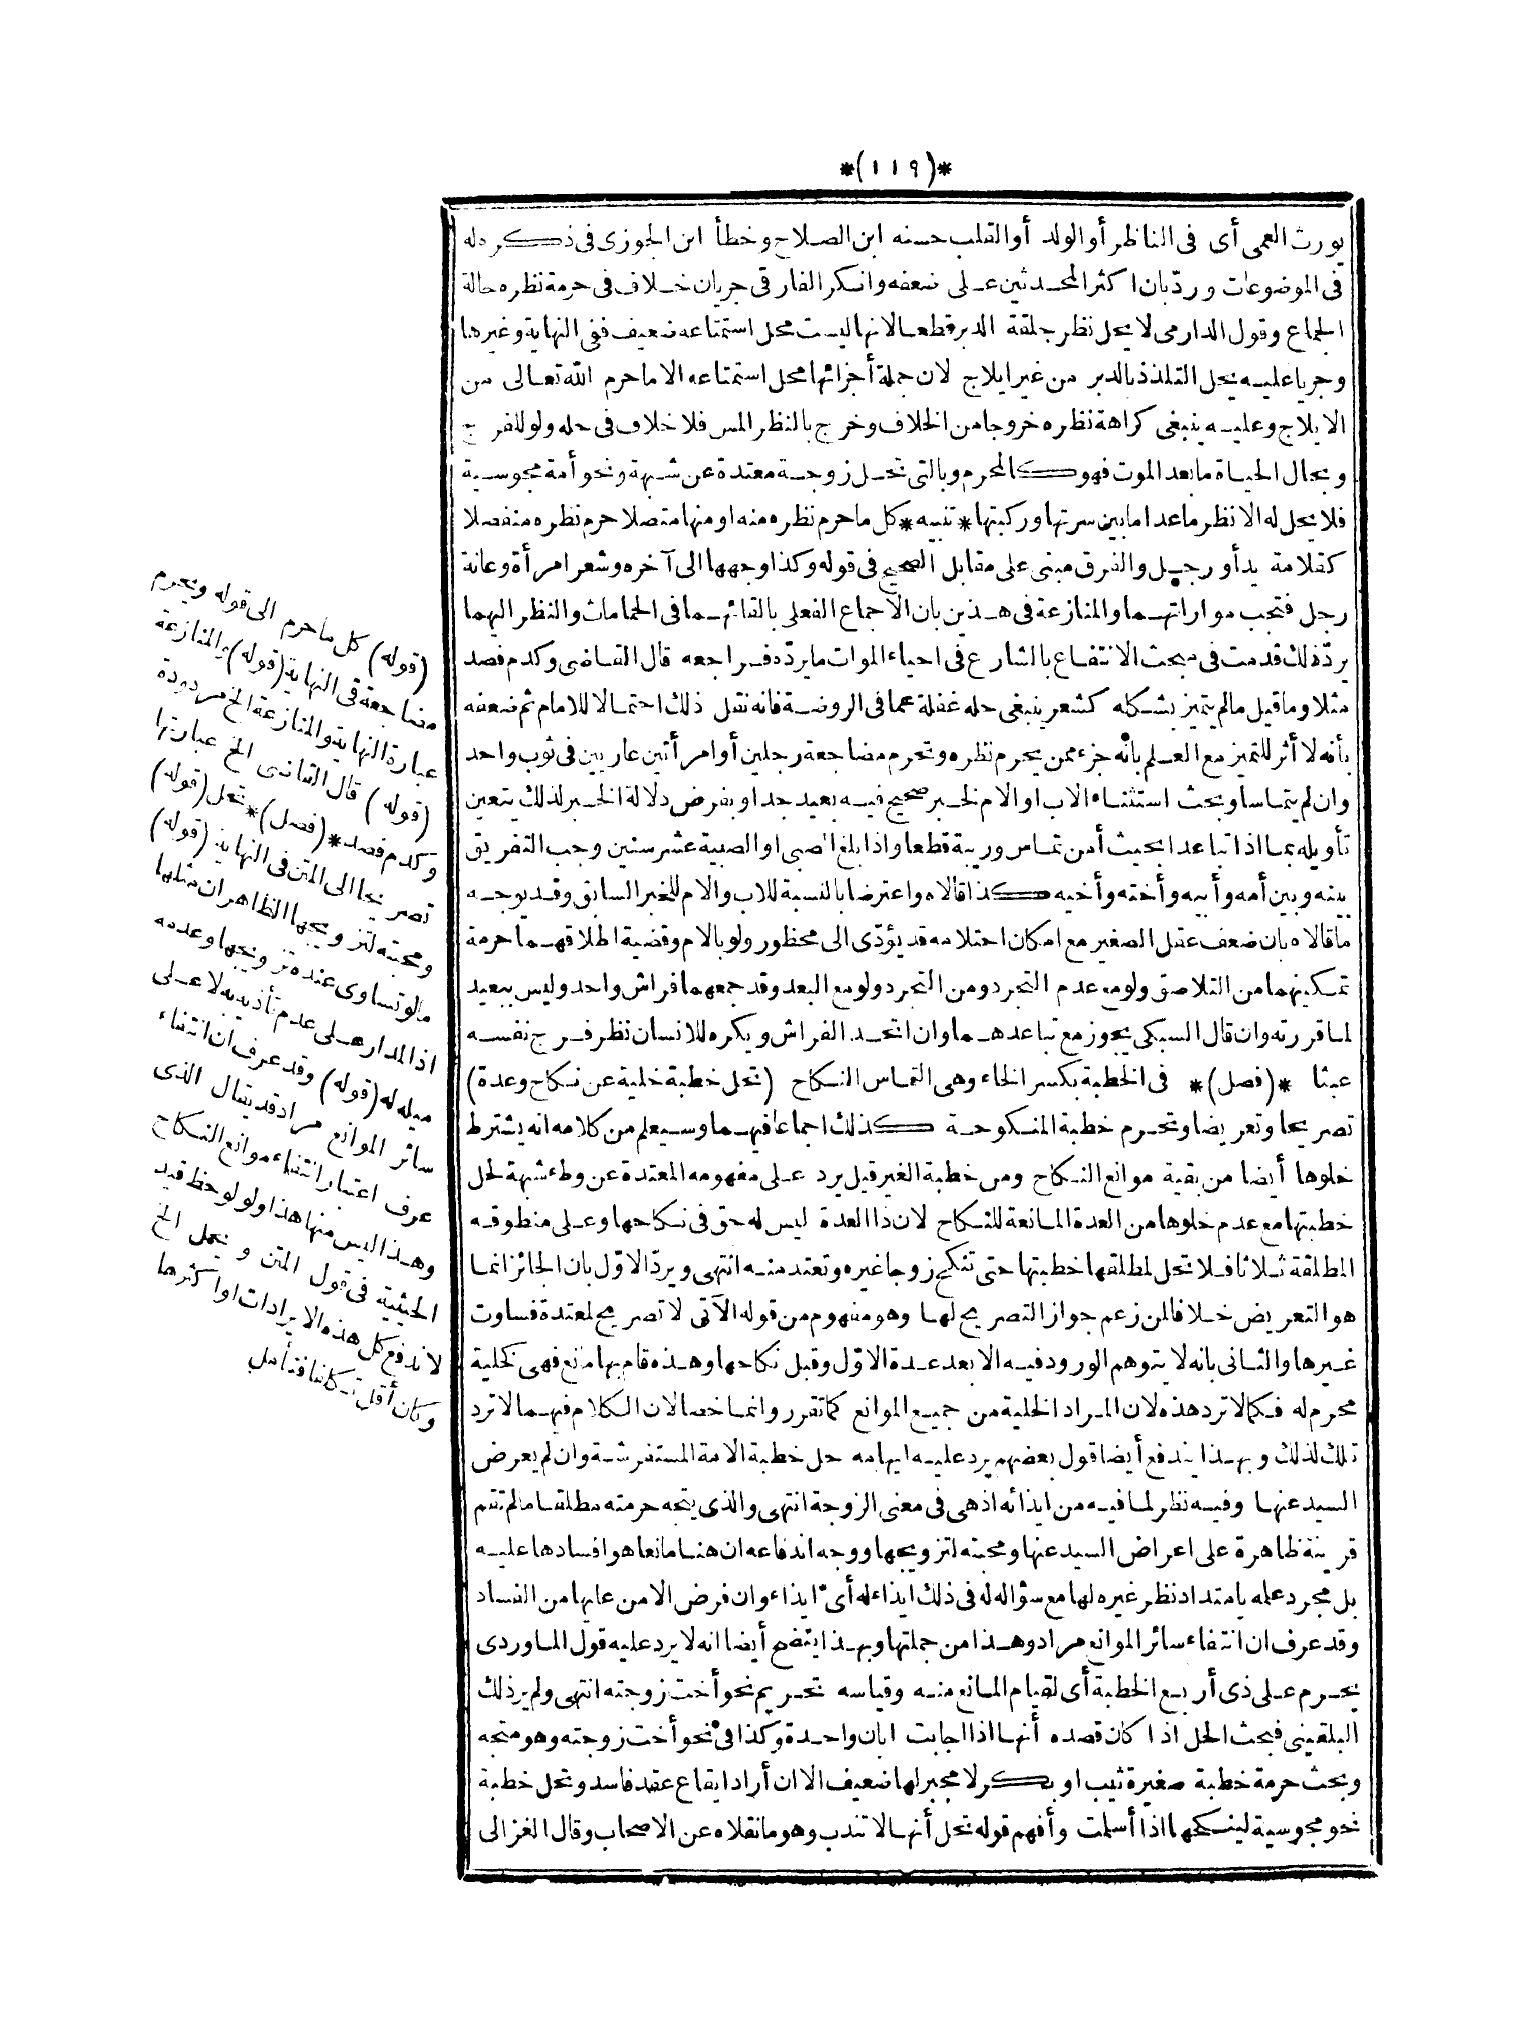 *(١١٩)*
يورث العمى أى فى الناظر أو الولد أو القلب حسنه ابن الصلاح وخطأ ابن الجوزى فى ذكره له
فى الموضوعات وردّبان اكثر المحدثين على ضعفه وانكر الفارقى جريان خلاف فى حرمة نظره حالة
الجماع وقول الدارمى لا يحل نظر حلقة الدبر قطعا لانها ليست محل استمتاعه ضعيف ففى النهاية وغيرها
وجريا عليه يحل التلذذ بالدبر من غير ايلاج لان جملة أجزائها محل استمتاعه الا ما حرم الله تعالى من
الايلاج وعليه ينبغى كراهة نظره خروجا من الخلاف وخرج بالنظر المس فلا خلاف فى حله ولو للفرج
وبحال الحياة ما بعد الموت فهو كالمحرم وبالتى تحل زوجة معتدة عن شبهة ونحو أمة مجوسية
فلا يحل له الا نظر ما عدا ما بين سرتها وركبتها *تنبيه* كل ما حرم نظره منه او منها متصلا حرم نظره منفصلا
كقلامة يد أو رجل والفرق مبنى على مقابل الصحيح فى قوله وكذا وجهها الى آخره وشعر امرأة وعانة
رجل فتجب مواراتهما والمنازعة فى هذين بان الاجماع الفعلى بالقائهما فى الحمامات والنظر اليهما
يردّ ذلك قدمت فى مبحث الانتفاع بالشارع فى احياء الموات ما يردّه فراجعه قال القاضى وكدم فصد
مثلا وما قيل ما لم يتميز بشكله كشعر ينبغى حله غفلة عما فى الروضة فانه نقل ذلك احتمالا للامام ثم ضعفه
بأنه لا أثر للتميز مع العلم بانه جزء ممن يحرم نظره وتحرم مضاجعة رجلين أو امرأتين عاريين فى ثوب واحد
وان لم يتماسا وبحث استثناء الاب او الام لخبر صحيح فيه بعيد جدا وبفرض دلالة الخبر لذلك يتعين
تأويله بما اذا تباعدا بحيث أمن تماس وريبة قطعا واذا بلغ الصبى او الصبية عشر سنين وجب التفريق
بينه وبين أمه وأبيه وأخته وأخيه كذا قالاه واعترضا بالنسبة للاب والام للخبر السابق وقد يوجه
ما قالاه بان ضعف عقل الصغير مع امكان احتلامه قد يؤدّى الى محظور ولو بالام وقضية اطلاقهما حرمة
تمكينهما من التلاصق ولو مع عدم التجرد ومن التجرد ولو مع البعد وقد جمعهما فراش واحد وليس ببعيد
لما قررته وان قال السبكى يجوز مع تباعدهما وان اتحد الفراش ويكره للانسان نظر فرج نفسه
عبثا *(فصل)* فى الخطبة بكسر الخاء وهى التماس النكاح (تحل خطبة خلية عن نكاح وعدة)
تصريحا وتعريضا وتحرم خطبة المنكوحة كذلك اجماعا فيهما وسيعلم من كلامه انه يشترط
خلوها أيضا من بقية موانع النكاح ومن خطبة الغير قيل يرد على مفهومه المعتدة عن وطء شبهة لحل
خطبتها مع عدم خلوها من العدة المانعة للنكاح لان ذا العدة ليس له حق فى نكاحها وعلى منطوقه
المطلقة ثلاثا فلا تحل لمطلقها خطبتها حتى تنكح زوجا غيره وتعتد منه انتهى ويردّ الاوّل بان الجائز انما
هو التعريض خلافا لمن زعم جواز التصريح لها وهو مفهوم من قوله الآتى لا تصريح لمعتدة فساوت
غيرها والثانى بانه لا يتوهم الورود فيه الا بعد عدة الاوّل وقبل نكاحها وهذه قام بها مانع فهى كخلية
محرم له فكما لا ترد هذه لان المراد الخلية من جميع الموانع كما تقرر وانما خصا لان الكلام فيهما لا ترد
تلك لذلك وبهذا يندفع أيضا قول بعضهم يرد عليه ايهامه حل خطبة الامة المستفرشة وان لم يعرض
السيد عنها وفيه نظر لما فيه من ايذائه اذ هى فى معنى الزوجة انتهى والذى يتجه حرمته مطلقا ما لم تقم
قرينة ظاهرة على اعراض السيد عنها ومحبته لتزويجها ووجه اندفاعه ان هنا مانعا هو افسادها عليه
بل مجرد علمه بامتداد نظر غيره لها مع سؤاله له فى ذلك ايذاء له أىّ ايذاء وان فرض الامن عليها من الفساد
وقد عرف ان انتفاء سائر الموانع مراد وهذا من جملتها وبهذا يتضح أيضا انه لا يرد عليه قول الماوردى
يحرم على ذى أربع الخطبة أى لقيام المانع منه وقياسه تحريم نحو أخت زوجته انتهى ولم ير ذلك
البلقينى فبحث الحل اذا كان قصده أنها اذا اجابت ابان واحدة وكذا فى نحو أخت زوجته وهو متجه
وبحث حرمة خطبة صغيرة ثيب او بكر لا مجبر لها ضعيف الا ان أراد ايقاع عقد فاسد وتحل خطبة
نحو مجوسية لينكحها اذا أسلمت وأفهم قوله تحل أنها لا تندب وهو ما نقلاه عن الاصحاب وقال الغزالى
(قوله) كل ما حرم الى قوله وتحرم
مضاجعة فى النهاية (قوله) والمنازعة
عبارة النهاية والمنازعة الخ مردودة
(قوله) قال القاضى الخ عبارتها
وكدم فصد *(فصل)* تحل (قوله)
تصريحا الى المتن فى النهاية (قوله)
ومحبته لتزويجها الظاهر ان مثلها
ما لو تساوى عنده تزويجها وعدمه
اذ المدار على عدم تأذيه به لا على
ميله له (قوله) وقد عرف ان انتفاء
سائر الموانع مراد قد يقال الذى
عرف اعتبار انتفاء موانع النكاح
وهذا ليس منها هذا ولو لوحظ قيد
الحيثية فى قول المتن ويحل الخ
لاندفع كل هذه الايرادات او اكثرها
وكان أقل تكلفا فتأمل